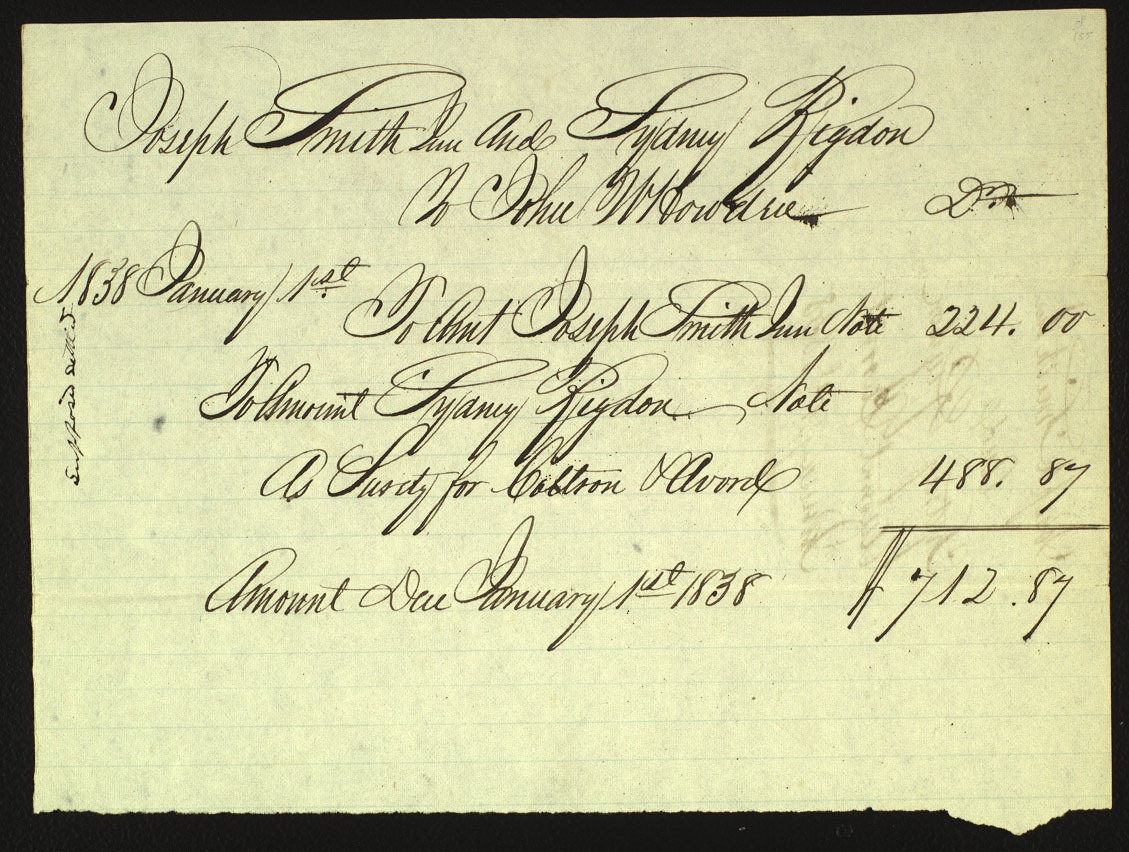 Joseph Smith Jun And Sydney Rigdon
To John W Howden Dr
1838 January 1st
To Amt Joseph Smith Jun Note 224.00
To Amount Sydney Rigdon Note
As Surety for Coltson & Avord 488.87
Amount Due January 1st 1838 $712.87
supposed settled